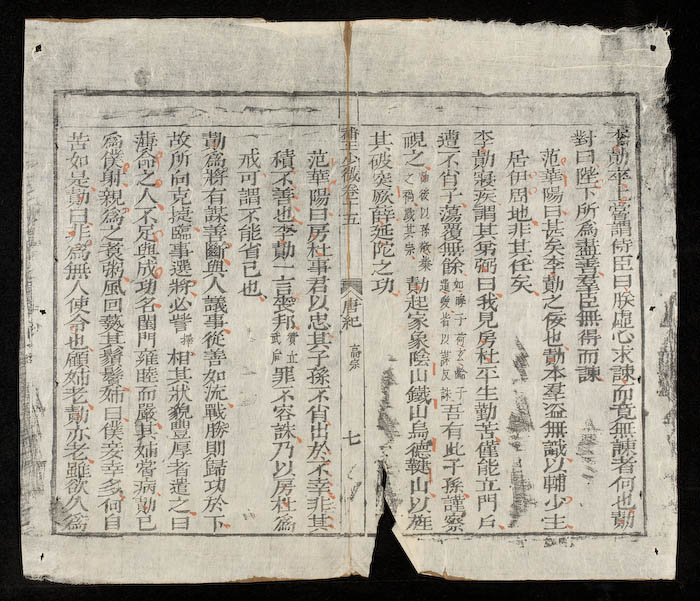 李勣卒上嘗謂侍臣曰朕虛心求諫而竟無諫者何也勣
對曰陛下所為盡善羣臣無得而諫
范華陽曰甚矣李勣之佞也勣本羣盜無識以輔少主
居伊周地非其任矣
李勣寢疾謂其弟弼曰我見房杜平生勤苦僅能立門戶
遭不肖子蕩覆無餘如晦子荷玄齡子遺愛皆以謀反誅吾有此子孫謹察
視之後以孫敬業之禍戮其宗勣起冢象陰山鐵山烏德鞬山以旌
其破突厥薛延陀之功
心 卷十五 唐紀 高宗 七
范華陽曰房杜事君以忠其子孫不肖出於不幸非其
積不善也李勣一言喪邦實立武后罪不容誅乃以房杜為
戒可謂不能省己也
勣為將有謀善斷與人議事從善如流戰勝則歸功於下
故所向克捷臨事選將必訾相其狀貌豐厚者遣之曰
薄命之人不足與成功名閨門雍睦而嚴其姊嘗病勣已
為僕射親為之煮粥風回爇其鬚鬢姊曰僕妾幸多何自
苦如是勣曰非為無人使令也顧姊老勣亦老雖欲久為